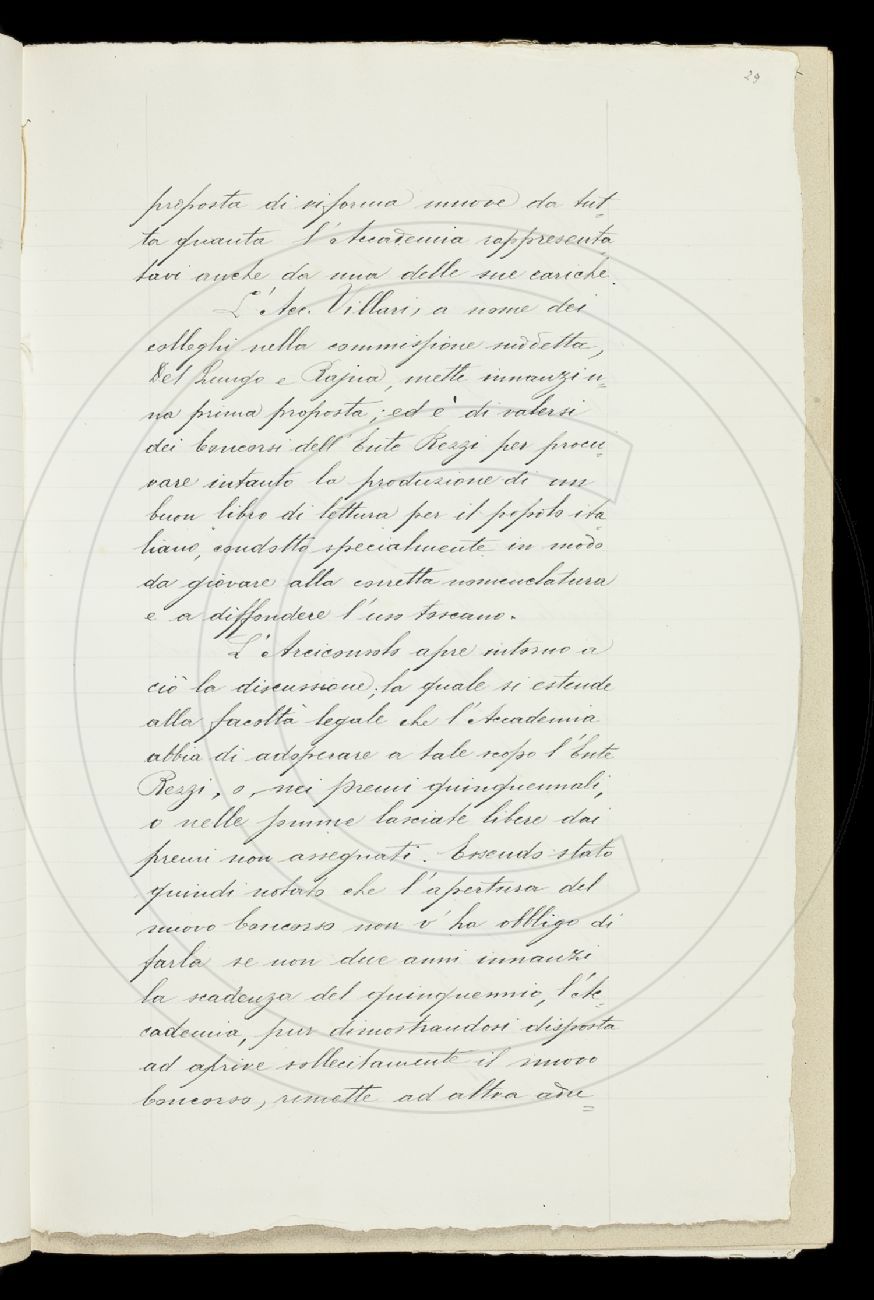 29
proposta di riforma muove da tut=
ta quanta l'Accademia rappresenta=
tavi anche da una delle sue cariche.
L'Acc. Villari, a nome dei
colleghi nella commissione suddetta,
Del Lungo e Rajna, mette innanzi u=
na prima proposta; ed è di valersi
dei Concorsi dell'Ente Rezzi per procu=
rare intanto la produzione di un
buon libro di lettura per il popolo ita=
liano, condotto specialmente in modo
da giovare alla corretta nomenclatura
e a diffondere l'uso toscano.
L'Arciconsolo apre intorno a
ciò la discussione; la quale si estende
alla facoltà legale che l'Accademia
abbia di adoperare a tale scopo l'Ente
Rezzi, o, nei premi quinquennali,
o nelle somme lasciate libere dai
premi non assegnati. Essendo stato
quindi notato che l'apertura del
nuovo Concorso non v'ha obbligo di
farla se non due anni innanzi
la scadenza del quinquennio, l'Ac=
cademia, pur dimostrandosi disposta
ad aprire sollecitamente il nuovo
Concorso, rimette ad altra adu=